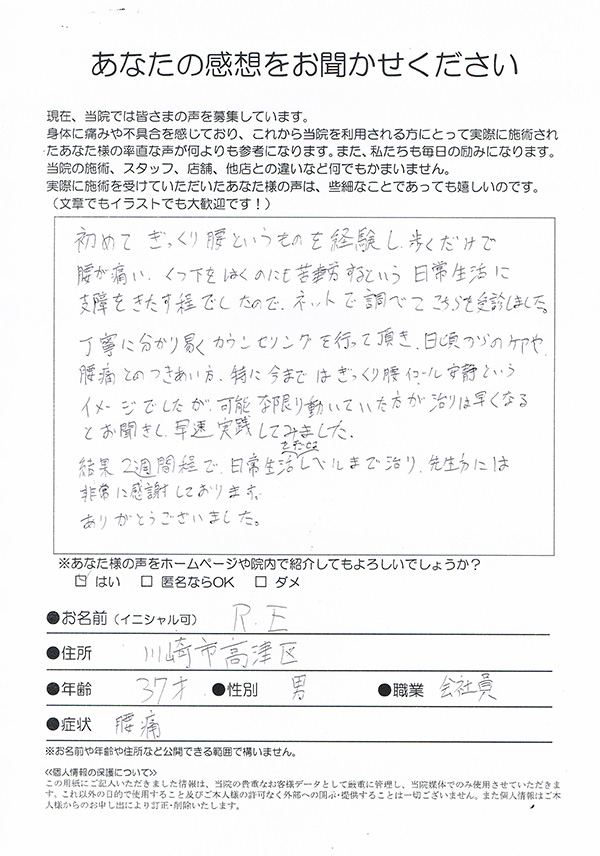 あなたの感想をお聞かせください
現在、当院では皆さまの声を募集しています。
身体に痛みや不具合を感じており、これから当院を利用される方にとって実際に施術され
たあなた様の率直な声が何よりも参考になります。また、私たちも毎日の励みになります。
当院の施術、スタッフ、店舗、他店との違いなど何でもかまいません。
実際に施術を受けていただいたあなた様の声は、些細なことであっても嬉しいのです。
（文章でもイラストでも大歓迎です！）
初めてぎっくり腰というものを経験し、歩くだけで
腰が痛い、くつ下をはくのにも苦労するという日常生活に
支障をきたす程でしたので、ネットで調べてこちらを受診しました。
丁寧に分かり易くカウンセリングを行って頂き、日頃からのケアや
腰痛とのつきあい方、特に今まではぎっくり腰イコール安静という
イメージでしたが、可能な限り動いていた方が治りは早くなる
とお聞きし、早速実践してみました。
結果2週間程で、日常生活レベルまで治り、先生方には
非常に感謝しております。
ありがとうございました。
※あなた様の声をホームページや院内で紹介してもよろしいでしょうか？
☑ はい □ 匿名ならOK □ ダメ
●お名前（イニシャル可） R.E
●住所 川崎市高津区
●年齢 37才 ●性別 男 ●職業 会社員
●症状 腰痛
※お名前や年齢や住所など公開できる範囲で構いません。
≪個人情報の保護について≫
この用紙にご記入いただきました情報は、当院の貴重なお客様データとして厳重に管理し、当院媒体でのみ使用させていただきま
す。これ以外の目的で使用すること及びご本人様の許可なく外部への開示・提供することは一切ございません。また個人情報はご本
人様からのお申し出により訂正・削除いたします。